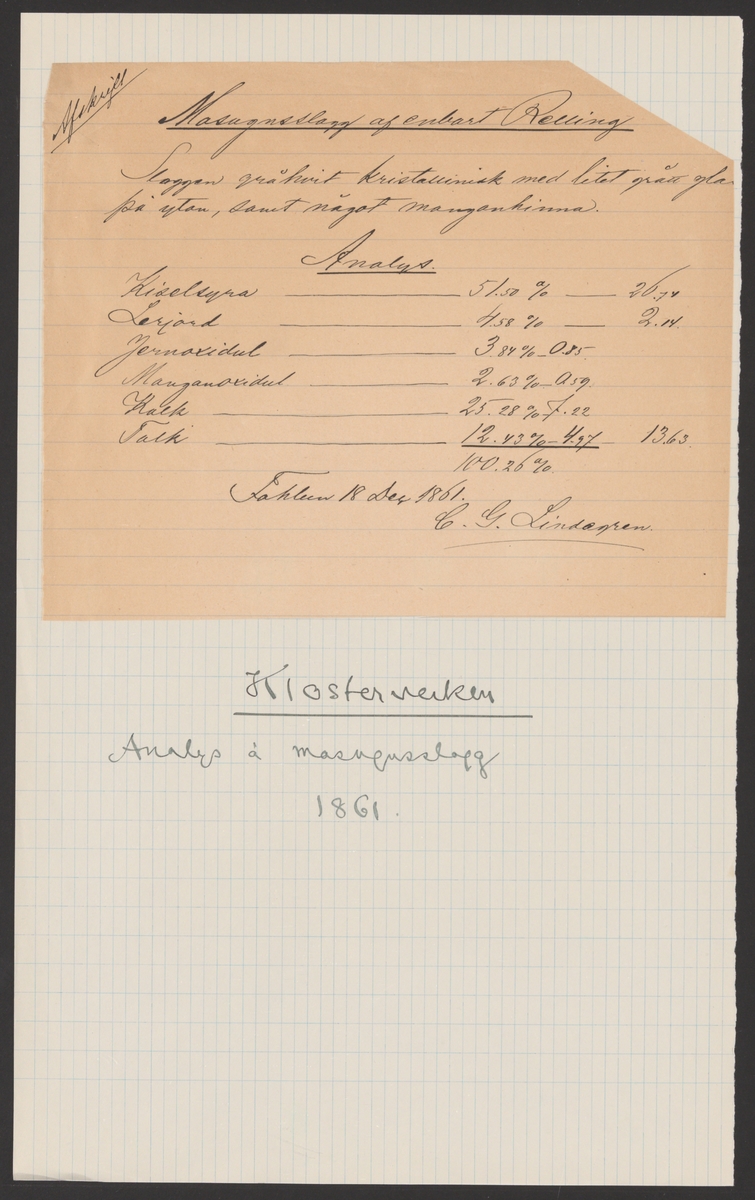 Afskrift
Masugnsslagg af enbart Relling
Slaggen gråhvit kristallinisk med litet grått gla
på ytan, samt något manganhinna.
Analys.
Kiselsyra — 51.50 % — 26.74
Lerjord — 4.58 % — 2.14.
Jernoxidul — 3.84 % — 0.85
Manganoxidul — 2.63 % — 0.59.
Kalk — 25.28 % 7.22
Talk — 12.43 % — 4.97 — 13.63.
100.26 %.
Fahlun 18 Dec 1861.
C. G. Lindegren.
Klosterverken
Analys å masugnsslagg
1861.